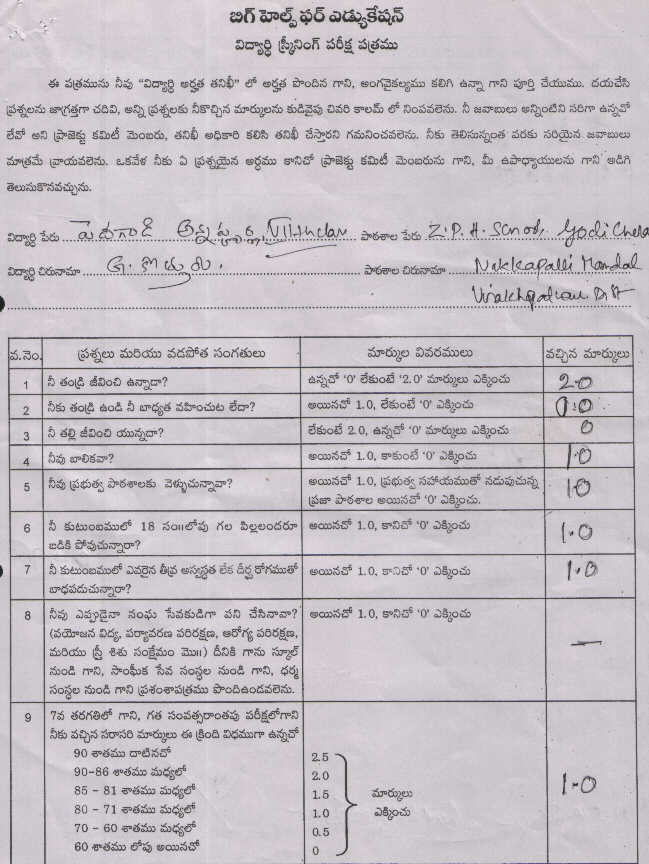 బిగ్ హెల్ప్ ఫర్ ఎడ్యుకేషన్
విద్యార్థి స్క్రీనింగ్ పరీక్ష పత్రము
ఈ పత్రమును నీవు "విద్యార్థి అర్హత తనిఖీ" లో అర్హత పొందిన గాని, అంగవైకల్యము కలిగి ఉన్నా గాని పూర్తి చేయుము. దయచేసి
ప్రశ్నలను జాగ్రత్తగా చదివి, అన్ని ప్రశ్నలకు నీకొచ్చిన మార్కులను కుడివైపు చివరి కాలమ్ లో నింపవలెను. నీ జవాబులు అన్నింటిని సరిగా ఉన్నవో
లేవో అని ప్రాజెక్టు కమిటీ మెంబరు, తనిఖీ అధికారి కలిసి తనిఖీ చేస్తారని గమనించవలెను. నీకు తెలిసున్నంత వరకు సరియైన జవాబులు
మాత్రమే వ్రాయవలెను. ఒకవేళ నీకు ఏ ప్రశ్నయైన అర్థము కానిచో ప్రాజెక్టు కమిటీ మెంబరును గాని, మీ ఉపాధ్యాయులను గాని అడిగి
తెలుసుకొనవచ్చును.
విద్యార్థి పేరు పాఠశాల పేరు Z.P.H.
విద్యార్థి చిరునామా పాఠశాల చిరునామా Nakkapalli Mandal
వ.నెం. ప్రశ్నలు మరియు వడపోత సంగతులు మార్కుల వివరములు వచ్చిన మార్కులు
1 నీ తండ్రి జీవించి ఉన్నాడా? ఉన్నచో '0' లేకుంటే '2.0' మార్కులు ఎక్కించు 2.0
2 నీకు తండ్రి ఉండి నీ బాధ్యత వహించుట లేదా? అయినచో 1.0, లేకుంటే '0' ఎక్కించు
3 నీ తల్లి జీవించి యున్నదా? లేకుంటే 2.0, ఉన్నచో '0' మార్కులు ఎక్కించు 0
4 నీవు బాలికవా? అయినచో 1.0, కాకుంటే '0' ఎక్కించు 1.0
5 నీవు ప్రభుత్వ పాఠశాలకు వెళ్ళుచున్నావా? అయినచో 1.0, ప్రభుత్వ సహాయముతో నడుపుచున్న 1.0
ప్రజా పాఠశాల అయినచో '0' ఎక్కించు.
6 నీ కుటుంబములో 18 సం॥లోపు గల పిల్లలందరూ అయినచో 1.0, కానిచో '0' ఎక్కించు 1.0
బడికి పోవుచున్నారా?
7 నీ కుటుంబములో ఎవరైన తీవ్ర అస్వస్థత లేక దీర్ఘ రోగముతో అయినచో 1.0, కానిచో '0' ఎక్కించు 1.0
బాధపడుచున్నారా?
8 నీవు ఎప్పుడైనా సంఘ సేవకుడిగా పని చేసినావా? అయినచో 1.0, కానిచో '0' ఎక్కించు —
(వయోజన విద్య, పర్యావరణ పరిరక్షణ, ఆరోగ్య పరిరక్షణ,
మరియు స్త్రీ శిశు సంక్షేమం మొ॥) దీనికి గాను స్కూల్
నుండి గాని, సాంఘీక సేవ సంస్థల నుండి గాని, ధర్మ
సంస్థల నుండి గాని ప్రశంశాపత్రము పొందిఉండవలెను.
9 7వ తరగతిలో గాని, గత సంవత్సరాంతపు పరీక్షలోగాని
నీకు వచ్చిన సరాసరి మార్కులు ఈ క్రింది విధముగా ఉన్నచో
90 శాతము దాటినచో 2.5
90-86 శాతము మధ్యలో 2.0
85 - 81 శాతము మధ్యలో 1.5 మార్కులు 1.0
80 - 71 శాతము మధ్యలో 1.0 ఎక్కించు
70 - 60 శాతము మధ్యలో 0.5
60 శాతము లోపు అయినచో 0